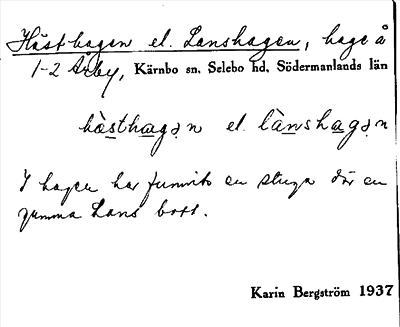 Hästhagen el. Lanshagen, hage å
1-2 Årby, Kärnbo sn. Selebo hd. Södermanlands län
hὰsthagə̣n el. lὰnshagə̣n
I hagen har funnits en stuga där en
gumma Lans bott.
Karin Bergström 1937